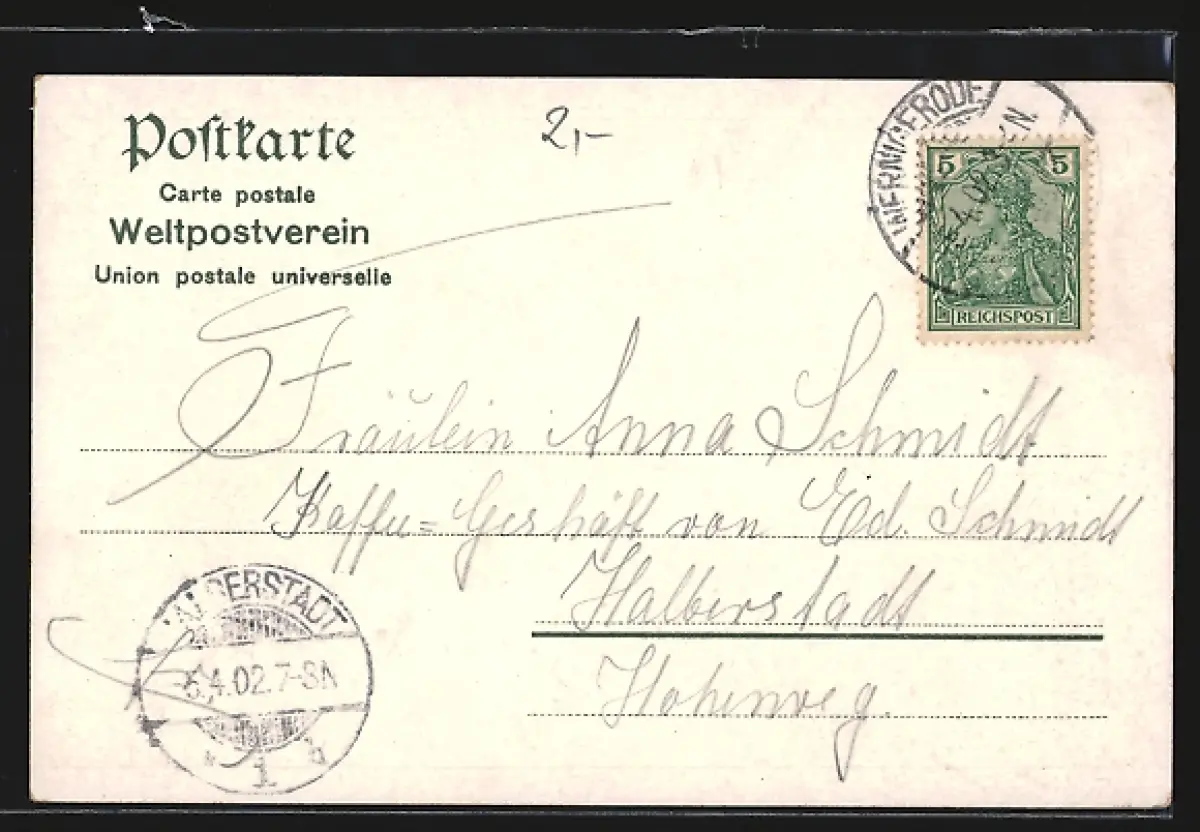 Postkarte
Carte postale
Weltpostverein
Union postale universelle
2,-
WERNIGERODE
4.02. N.
5 5
REICHSPOST
Fräulein Anna Schmidt
Kaffee=Geschäft von Ed. Schmidt
Halberstadt
Hohenweg.
HALBERSTADT
5.4.02.7-8N
* 1 b